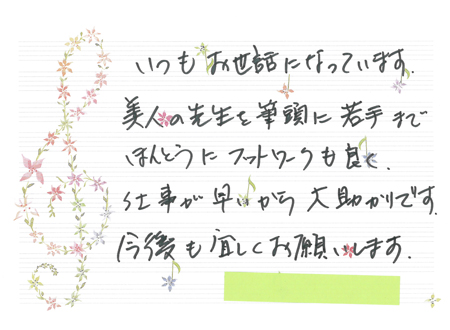 いつもお世話になっています.
美人の先生を筆頭に若手まで
ほんとうにフットワークも良く、
仕事が早いから大助かりです.
今後も宜しくお願いします.